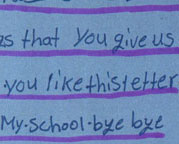 that you give us
you like this letter
My.school.bye bye